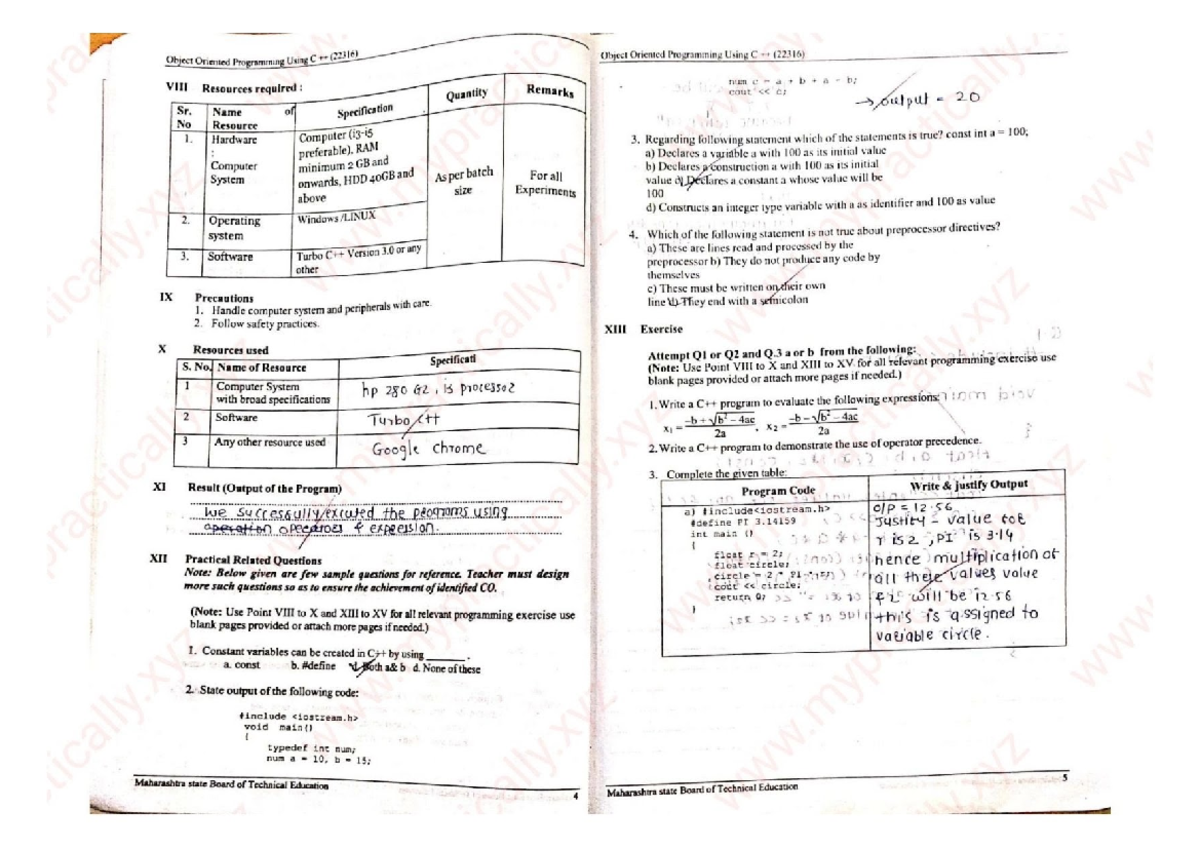 Object Oriented Programming Using C ++ (22316)
VIII Resources required :
Sr. No Name of Resource Specification Quantity Remarks
1. Hardware : Computer System Computer (i3-i5 preferable), RAM minimum 2 GB and onwards, HDD 40GB and above As per batch size For all Experiments
2. Operating system Windows /LINUX
3. Software Turbo C++ Version 3.0 or any other
IX Precautions
1. Handle computer system and peripherals with care.
2. Follow safety practices.
X Resources used
S. No. Name of Resource Specificati
1 Computer System with broad specifications hp 280 G2, i5 processor
2 Software Turbo C++
3 Any other resource used Google Chrome
XI Result (Output of the Program)
We successfully excuted the programs using
operation operators & experssion.
XII Practical Related Questions
Note: Below given are few sample questions for reference. Teacher must design
more such questions so as to ensure the achievement of identified CO.
(Note: Use Point VIII to X and XIII to XV for all relevant programming exercise use
blank pages provided or attach more pages if needed.)
1. Constant variables can be created in C++ by using ________ .
a. const b. #define Both a& b d. None of these
2. State output of the following code:
#include <iostream.h>
void main()
{
typedef int num;
num a = 10, b = 15;
Maharashtra state Board of Technical Education
4
Object Oriented Programming Using C ++ (22316)
num c = a + b + a - b;
cout << c;
}
→ output = 20
3. Regarding following statement which of the statements is true? const int a = 100;
a) Declares a variable a with 100 as its initial value
b) Declares a construction a with 100 as its initial
value c) Declares a constant a whose value will be
100
d) Constructs an integer type variable with a as identifier and 100 as value
4. Which of the following statement is not true about preprocessor directives?
a) These are lines read and processed by the
preprocessor b) They do not produce any code by
themselves
c) These must be written on their own
line d) They end with a semicolon
XIII Exercise
Attempt Q1 or Q2 and Q.3 a or b from the following:
(Note: Use Point VIII to X and XIII to XV for all relevant programming exercise use
blank pages provided or attach more pages if needed.)
1. Write a C++ program to evaluate the following expressions:
x₁ = (-b + √b² – 4ac)/2a , x₂ = (-b – √b² – 4ac)/2a
2. Write a C++ program to demonstrate the use of operator precedence.
3. Complete the given table:
Program Code Write & justify Output
a) #include<iostream.h>
#define PI 3.14159
int main ()
{
float r = 2;
float circle;
circle = 2 * PI * r;
cout << circle;
return 0;
}
O/P = 12.56
Justify - value for
r is 2, PI is 3.14
hence multiplication of
all these values value
will be 12.56
this is assigned to
variable circle.
Maharashtra state Board of Technical Education
5
www.mypractically.xyz